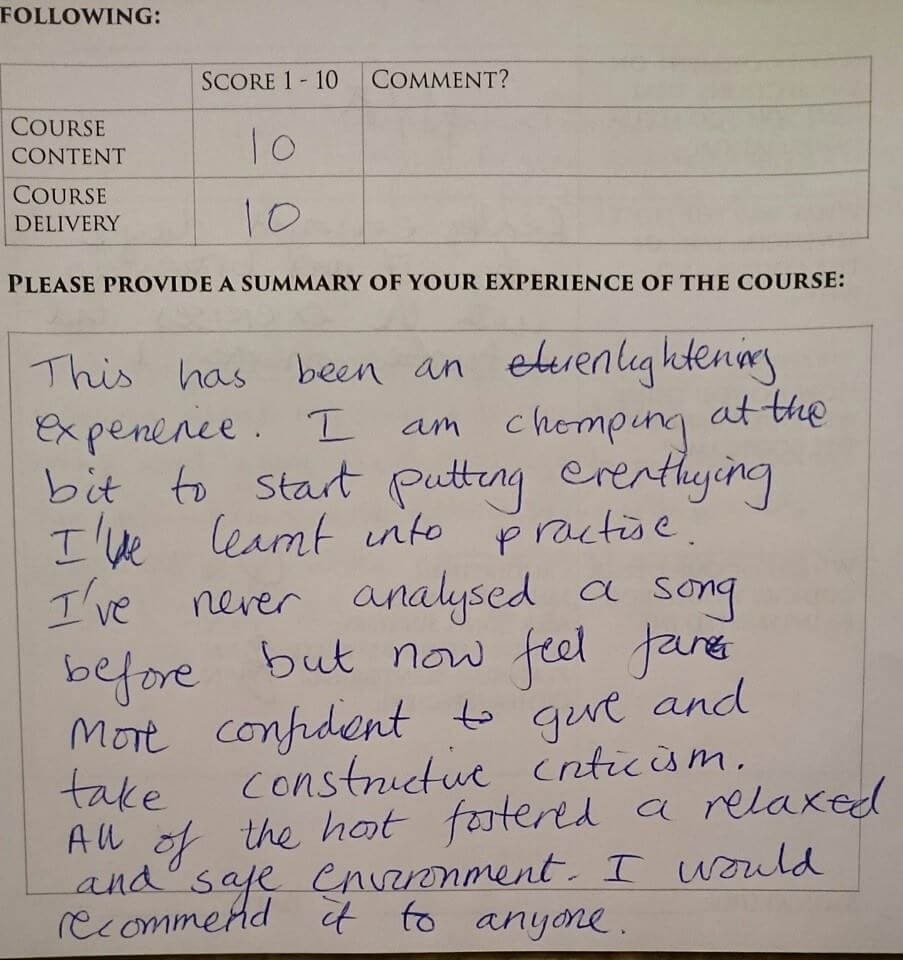 FOLLOWING:
SCORE 1 - 10 COMMENT?
COURSE CONTENT 10
COURSE DELIVERY 10
PLEASE PROVIDE A SUMMARY OF YOUR EXPERIENCE OF THE COURSE:
This has been an enlightening
experience. I am chomping at the
bit to start putting everythying
I've learnt into practise.
I've never analysed a song
before but now feel far
more confident to give and
take constructive criticism.
All of the host fostered a relaxed
and safe environment. I would
recommend it to anyone.